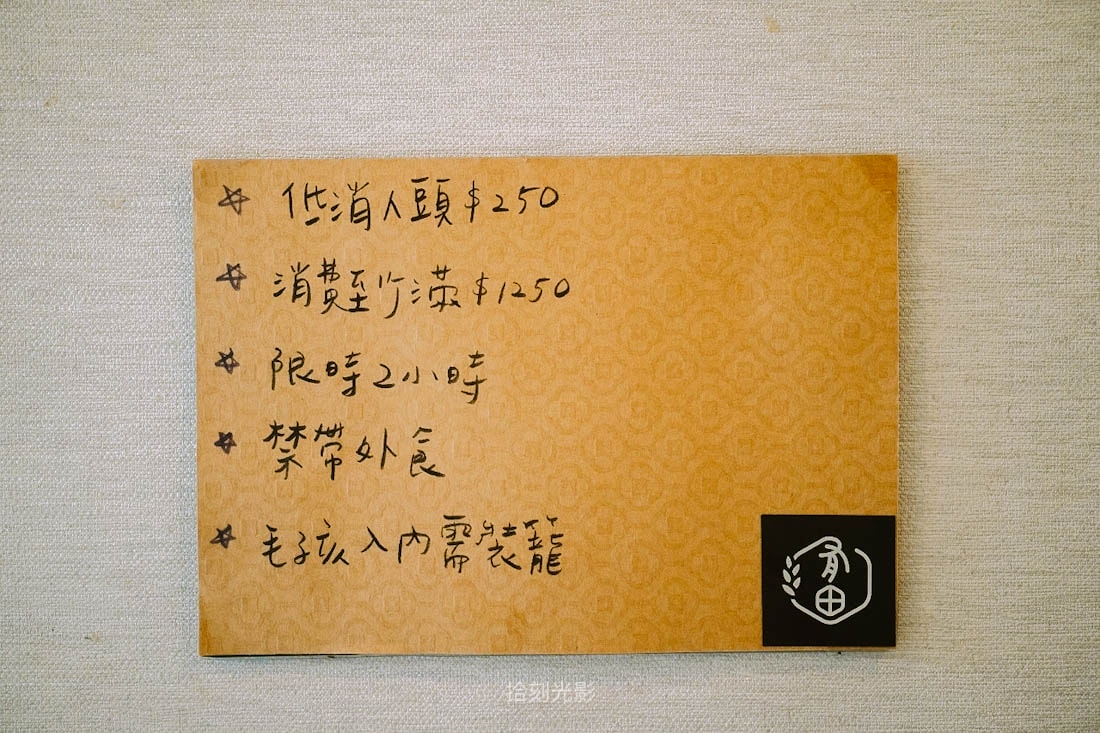 ☆ 低消人頭$250
☆ 消費至少滿$1250
☆ 限時2小時
☆ 禁帶外食
☆ 毛孩入內需裝籠
有田
拾刻光影